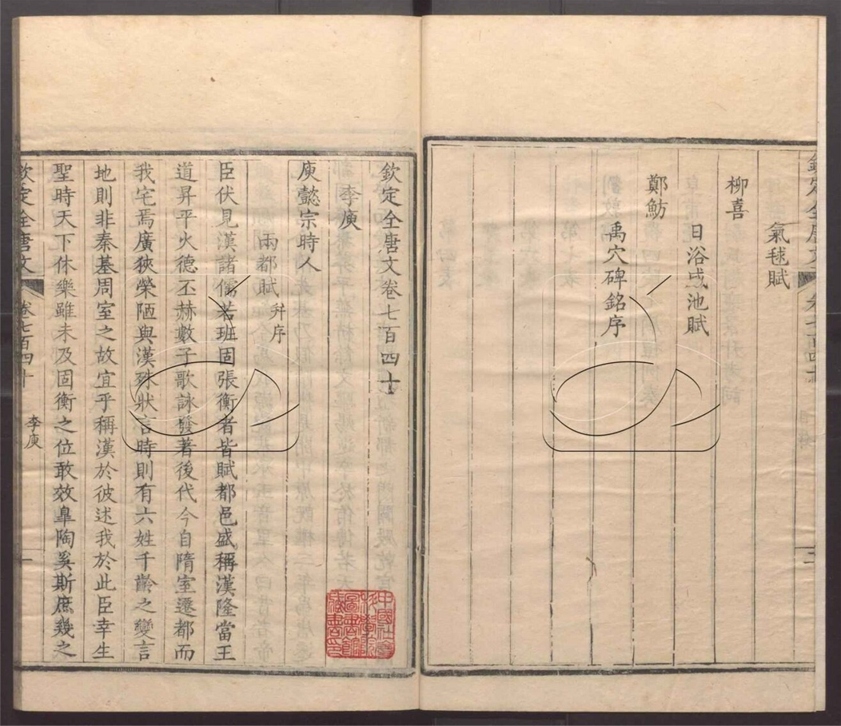 氣毬賦
柳喜
日浴咸池賦
鄭魴
禹穴碑銘序
欽定全唐文卷七百四十
李庾
庾懿宗時人
兩都賦 并序
臣伏見漢諸儒若班固張衡者皆賦都邑盛稱漢隆當王
道昇平火德丕赫數子歌詠發著後代今自隋室遷都而
我宅焉廣狹榮陋與漢殊狀言時則有六姓千齡之變言
地則非秦基周室之故宜乎稱漢於彼述我於此臣幸生
聖時天下休樂雖未及固衡之位敢效臯陶奚斯庶幾之
欽定全唐文 卷七百四十 李庾 一